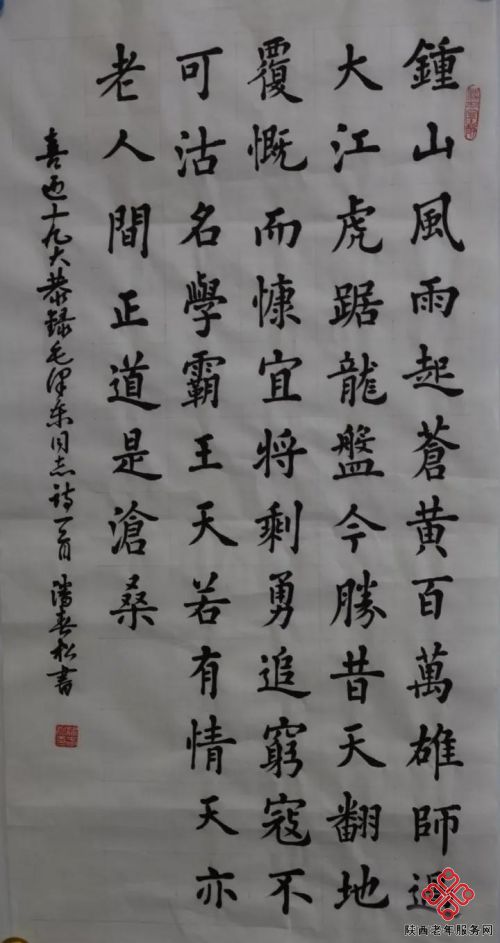 鍾山風雨起蒼黃百萬雄師過
大江虎踞龍盤今勝昔天翻地
覆慨而慷宜將剩勇追窮寇不
可沽名學霸王天若有情天亦
老人間正道是滄桑
喜迎十九大恭録毛泽东同志诗一首 潘春松書
陕西老年服务网